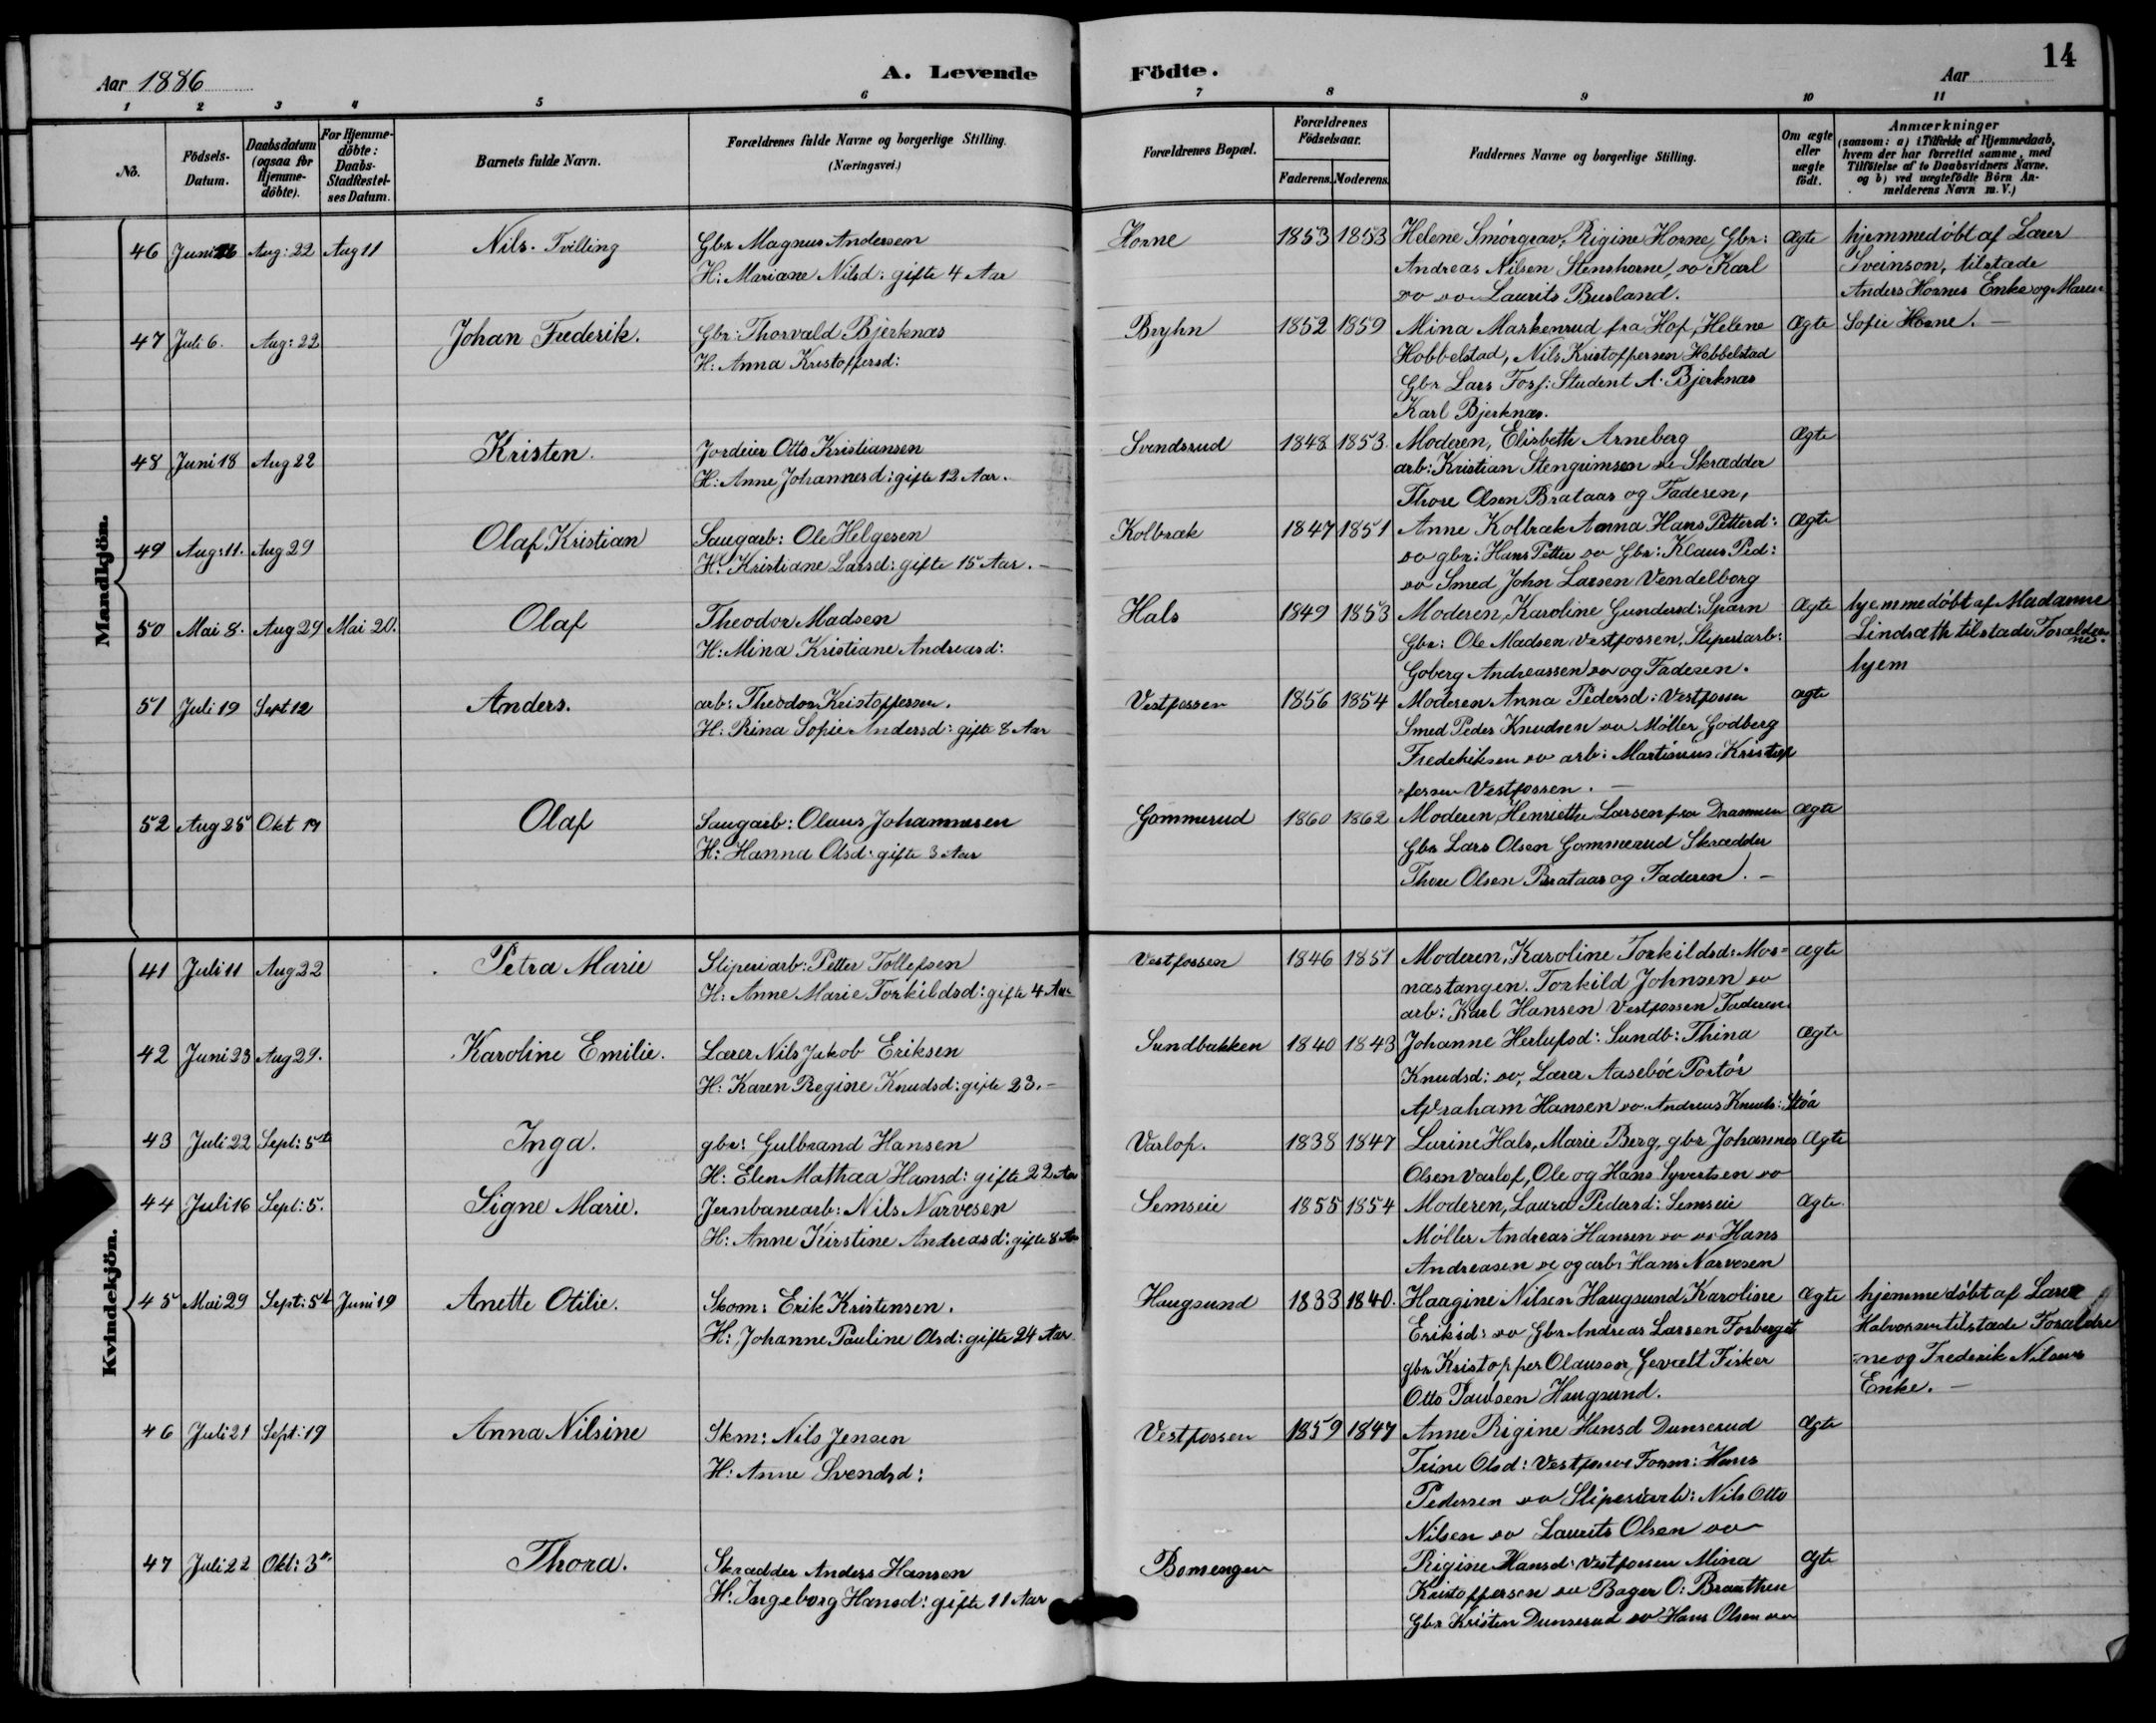 14
Aar 1886
A. Levende
Födte.
Aar
1 2 3 4 5 6 7 8 9 10 11
No.
Födsels-Datum.
Daabsdatum (ogsaa for Hjemme-döbte).
For Hjemme-döbte: Daabs-Stadfæstel-ses Datum.
Barnets fulde Navn.
Forældrenes fulde Navne og borgerlige Stilling. (Næringsvei.)
Forældrenes Bopæl.
Forældrenes Födselsaar.
Faderens. Moderens.
Faddernes Navne og borgerlige Stilling.
Om ægte eller uægte födt.
Anmærkninger
(saasom: a) i Tilfælde af Hjemmedaab,
hvem der har forrettet samme, med
Tilföielse af to Daabsvidners Navne.
og b) ved uægtefödte Börn An-
melderens Navn m. V.)
Mandkjön.
46 Juni Aug: 22 Aug 11 Nils. Tvilling Gbr Magnus Andersen Horne 1853 1853 Helene Smórgrav, Rigine Horne, Gbr: Ægte hjemmedóbt af Lærer
H: Mariane Nilsd: gifte 4 Aar Andreas Nilsen Stenshorne, so Karl Sveinson, tilstade
so so Laurits Busland. Anders Hornes Enke og Maren
47 Juli 6. Aug: 22 Johan Frederik. Gbr: Thorvald Bjerknæs Bryhn 1852 1859 Mina Markenrud fra Hof, Helene Ægte Sofie Horne.
H: Anna Kristoffersd: Hobbelstad, Nils Kristoffersen Hobbelstad
Gbr Lars Fosf: Student A. Bjerknæs
Karl Bjerknæs.
48 Juni 18 Aug 22 Kristen. Jordeier Otto Kristiansen Svendsrud 1848 1853. Moderen, Elisbeth Arneberg Ægte
H: Anne Johannesd: gifte 12 Aar. arb: Kristian Stengrimsen so Skrædder
Thore Olsen Brataas og Faderen,
49 Aug: 11. Aug 29 Olaf Kristian Saugarb: Ole Helgesen Kolbræk 1847 1851 Anne Kolbræk Anna Hans Petterd: Ægte
H: Kristiane Larsd: gifte 15 Aar. so gbr: Hans Petter so Gbr: Klaus Ped:
so Smed John Larsen Vendelborg
50 Mai 8. Aug 29 Mai 20. Olaf Theodor Madsen Hals 1849 1853 Moderen, Karoline Gundersd: Sparn Ægte hjemmedóbt af Madamme
H: Mina Kristiane Andreasd: Gbr: Ole Madsen Vestfossen, Sliperiarb: Lindsæth tilstade Forældre
ne.
Goberg Andreassen so og Faderen. hjem
51 Juli 19 Sept 12 Anders. arb: Theodor Kristoffersen. Vestfossen 1856 1854 Moderen Anna Pedersd: Vestfossen ægte
H: Rina Sofie Andersd: gifte 8 Aar Smed Peder Knudsen so Móller Godberg
Frederiksen so arb: Martinius Kristof
fersen Vestfossen.
52 Aug 25 Okt 17 Olaf Saugarb: Olaus Johannesen Gommerud 1860 1862 Moderen, Henriette Larsen fra Drammen Ægte
H: Hanna Olsd: gifte 3 Aar Gbr Lars Olsen Gommerud Skrædder
Thore Olsen Brataas og Faderen.
Kvindekjön.
41 Juli 11 Aug 22 Petra Marie Sliperiarb: Petter Tollefsen Vestfossen 1846 1851 Moderen, Karoline Torkildsd: Mos= ægte
H: Anne Marie Torkildsd: gifte 4 Aar næstangen. Torkild Johnsen so
arb: Karl Hansen Vestfossen Faderen
42 Juni 23 Aug 29. Karoline Emilie. Lærer Nils Jakob Eriksen Sundbakken 1840 1843 Johanne Herlufsd: Sundb: Thina Ægte
H: Karen Regine Knudsd: gifte 23. Knudsd: so, Lærer Aasebóe Portór
Abraham Hansen so Andreas Knuds: Stóa
43 Juli 22 Sept: 5te Inga. gbr: Gulbrand Hansen Varlof. 1838 1847 Larine Hals, Marie Berg, gbr Johannes Ægte
H: Elen Mathea Hansd: gifte 22 Aar Olsen Varlof, Ole og Hans Syvertsen so
44 Juli 16 Sept: 5. Signe Marie. Jernbanearb: Nils Narvesen Semseie 1855 1854 Moderen, Laura Pedersd: Semseie Ægte.
H: Anne Kirstine Andreasd: gifte 8 Aar Móller Andreas Hansen so so Hans
Andreasen so og arb: Hans Narvesen
45 Mai 29 Sept: 5te Juni 19 Anette Otilie. Skom: Erik Kristensen. Haugsund 1833 1840. Haagine Nilsen Haugsund Karoline Ægte hjemmedóbt af Lærer
H: Johanne Pauline Olsd: gifte 24 Aar Eriksd: so Gbr Andreas Larsen Forberget Halvorsen tilstade Forældre
gbr Kristoffer Olausen Gevælt Fisker =ne og Frederik Nilsens
Otto Paulsen Haugsund. Enke.
46 Juli 21 Sept: 19 Anna Nilsine Skm: Nils Jensen Vestfossen 1859 1847 Anne Rigine Hansd Dunserud Ægte
H: Anne Svendsd: Trine Olsd: Vestfossen Form: Hans
Pedersen so Sliperiarb: Nils Otto
Nilsen so Laurits Olsen so
47 Juli 22 Okt: 3 Thora. Skrædder Anders Hansen Bomengen Rigine Hansd: Vestfossen Mina Ægte
H: Ingeborg Hansd: gifte 11 Aar Kristoffersen so Bager O: Braathen
Gbr Kristen Dunserud so Hans Olsen so